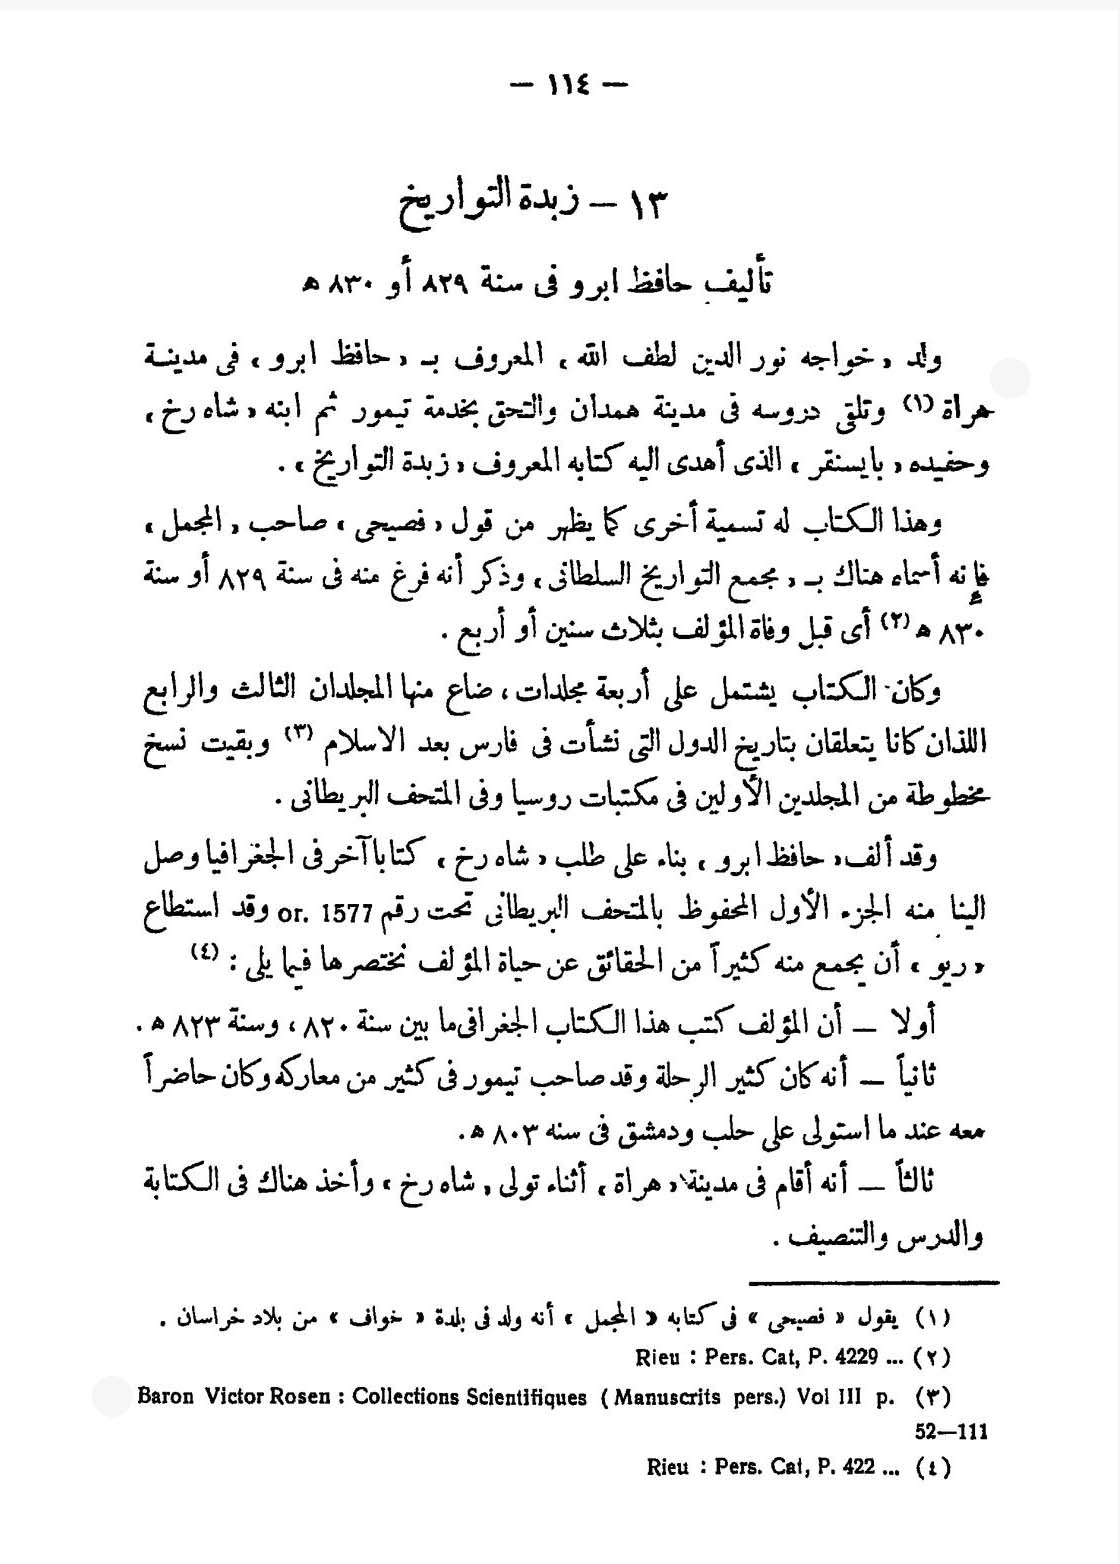 — ١١٤ —
١٣ — زبدة التواريخ
تأليف حافظ ابرو فى سنة ٨٢٩ أو ٨٣٠ هـ
ولد « خواجه نور الدين لطف الله » المعروف بـ « حافظ ابرو » فى مدينـة
هراة (١) وتلقى دروسه فى مدينة همدان والتحق بخدمة تيمور ثم ابنه « شاه رخ »
وحفيده « بايسنقر » الذى أهدى اليه كتابه المعروف « زبدة التواريخ » .
وهذا الكتاب له تسمية أخرى كما يظهر من قول « فصيحى » صاحب « المجمل »
فإنه أسماه هناك بـ « مجمع التواريخ السلطانى » وذكر أنه فرغ منه فى سنة ٨٢٩ أو سنة
٨٣٠ هـ (٢) أى قبل وفاة المؤلف بثلاث سنين أو أربع .
وكان الكتاب يشتمل على أربعة مجلدات ، ضاع منها المجلدان الثالث والرابع
اللذان كانا يتعلقان بتاريخ الدول التى نشأت فى فارس بعد الاسلام (٣) وبقيت نسخ
مخطوطة من المجلدين الأولين فى مكتبات روسيا وفى المتحف البريطانى .
وقد ألف « حافظ ابرو » بناء على طلب « شاه رخ » كتابا آخر فى الجغرافيا وصل
الينا منه الجزء الأول المحفوظ بالمتحف البريطانى تحت رقم or. 1577 وقد استطاع
« ريو » أن يجمع منه كثيراً من الحقائق عن حياة المؤلف نختصرها فيما يلى : (٤)
أولا — أن المؤلف كتب هذا الكتاب الجغرافى ما بين سنة ٨٢٠ ، وسنة ٨٢٣ هـ .
ثانياً — أنه كان كثير الرحلة وقد صاحب تيمور فى كثير من معاركه وكان حاضراً
معه عند ما استولى على حلب ودمشق فى سنه ٨٠٣ هـ .
ثالثاً — أنه أقام فى مدينة « هراة » أثناء تولى « شاه رخ » وأخذ هناك فى الكتابة
والدرس والتنصيف .
(١) يقول « فصيحى » فى كتابه « المجمل » أنه ولد فى بلدة « خواف » من بلاد خراسان .
(٢) Rieu : Pers. Cat, P. 4229 ...
(٣) Baron Victor Rosen : Collections Scientifiques ( Manuscrits pers.) Vol III p.
52—111
(٤) Rieu : Pers. Cat, P. 422 ...